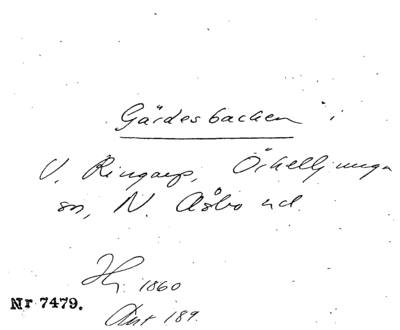 Gärdesbacken
V. Ringarp, Örkelljunga
sn, N. Åsbo hd.
Hj. 1860
Nr 7479.
Ant 189.